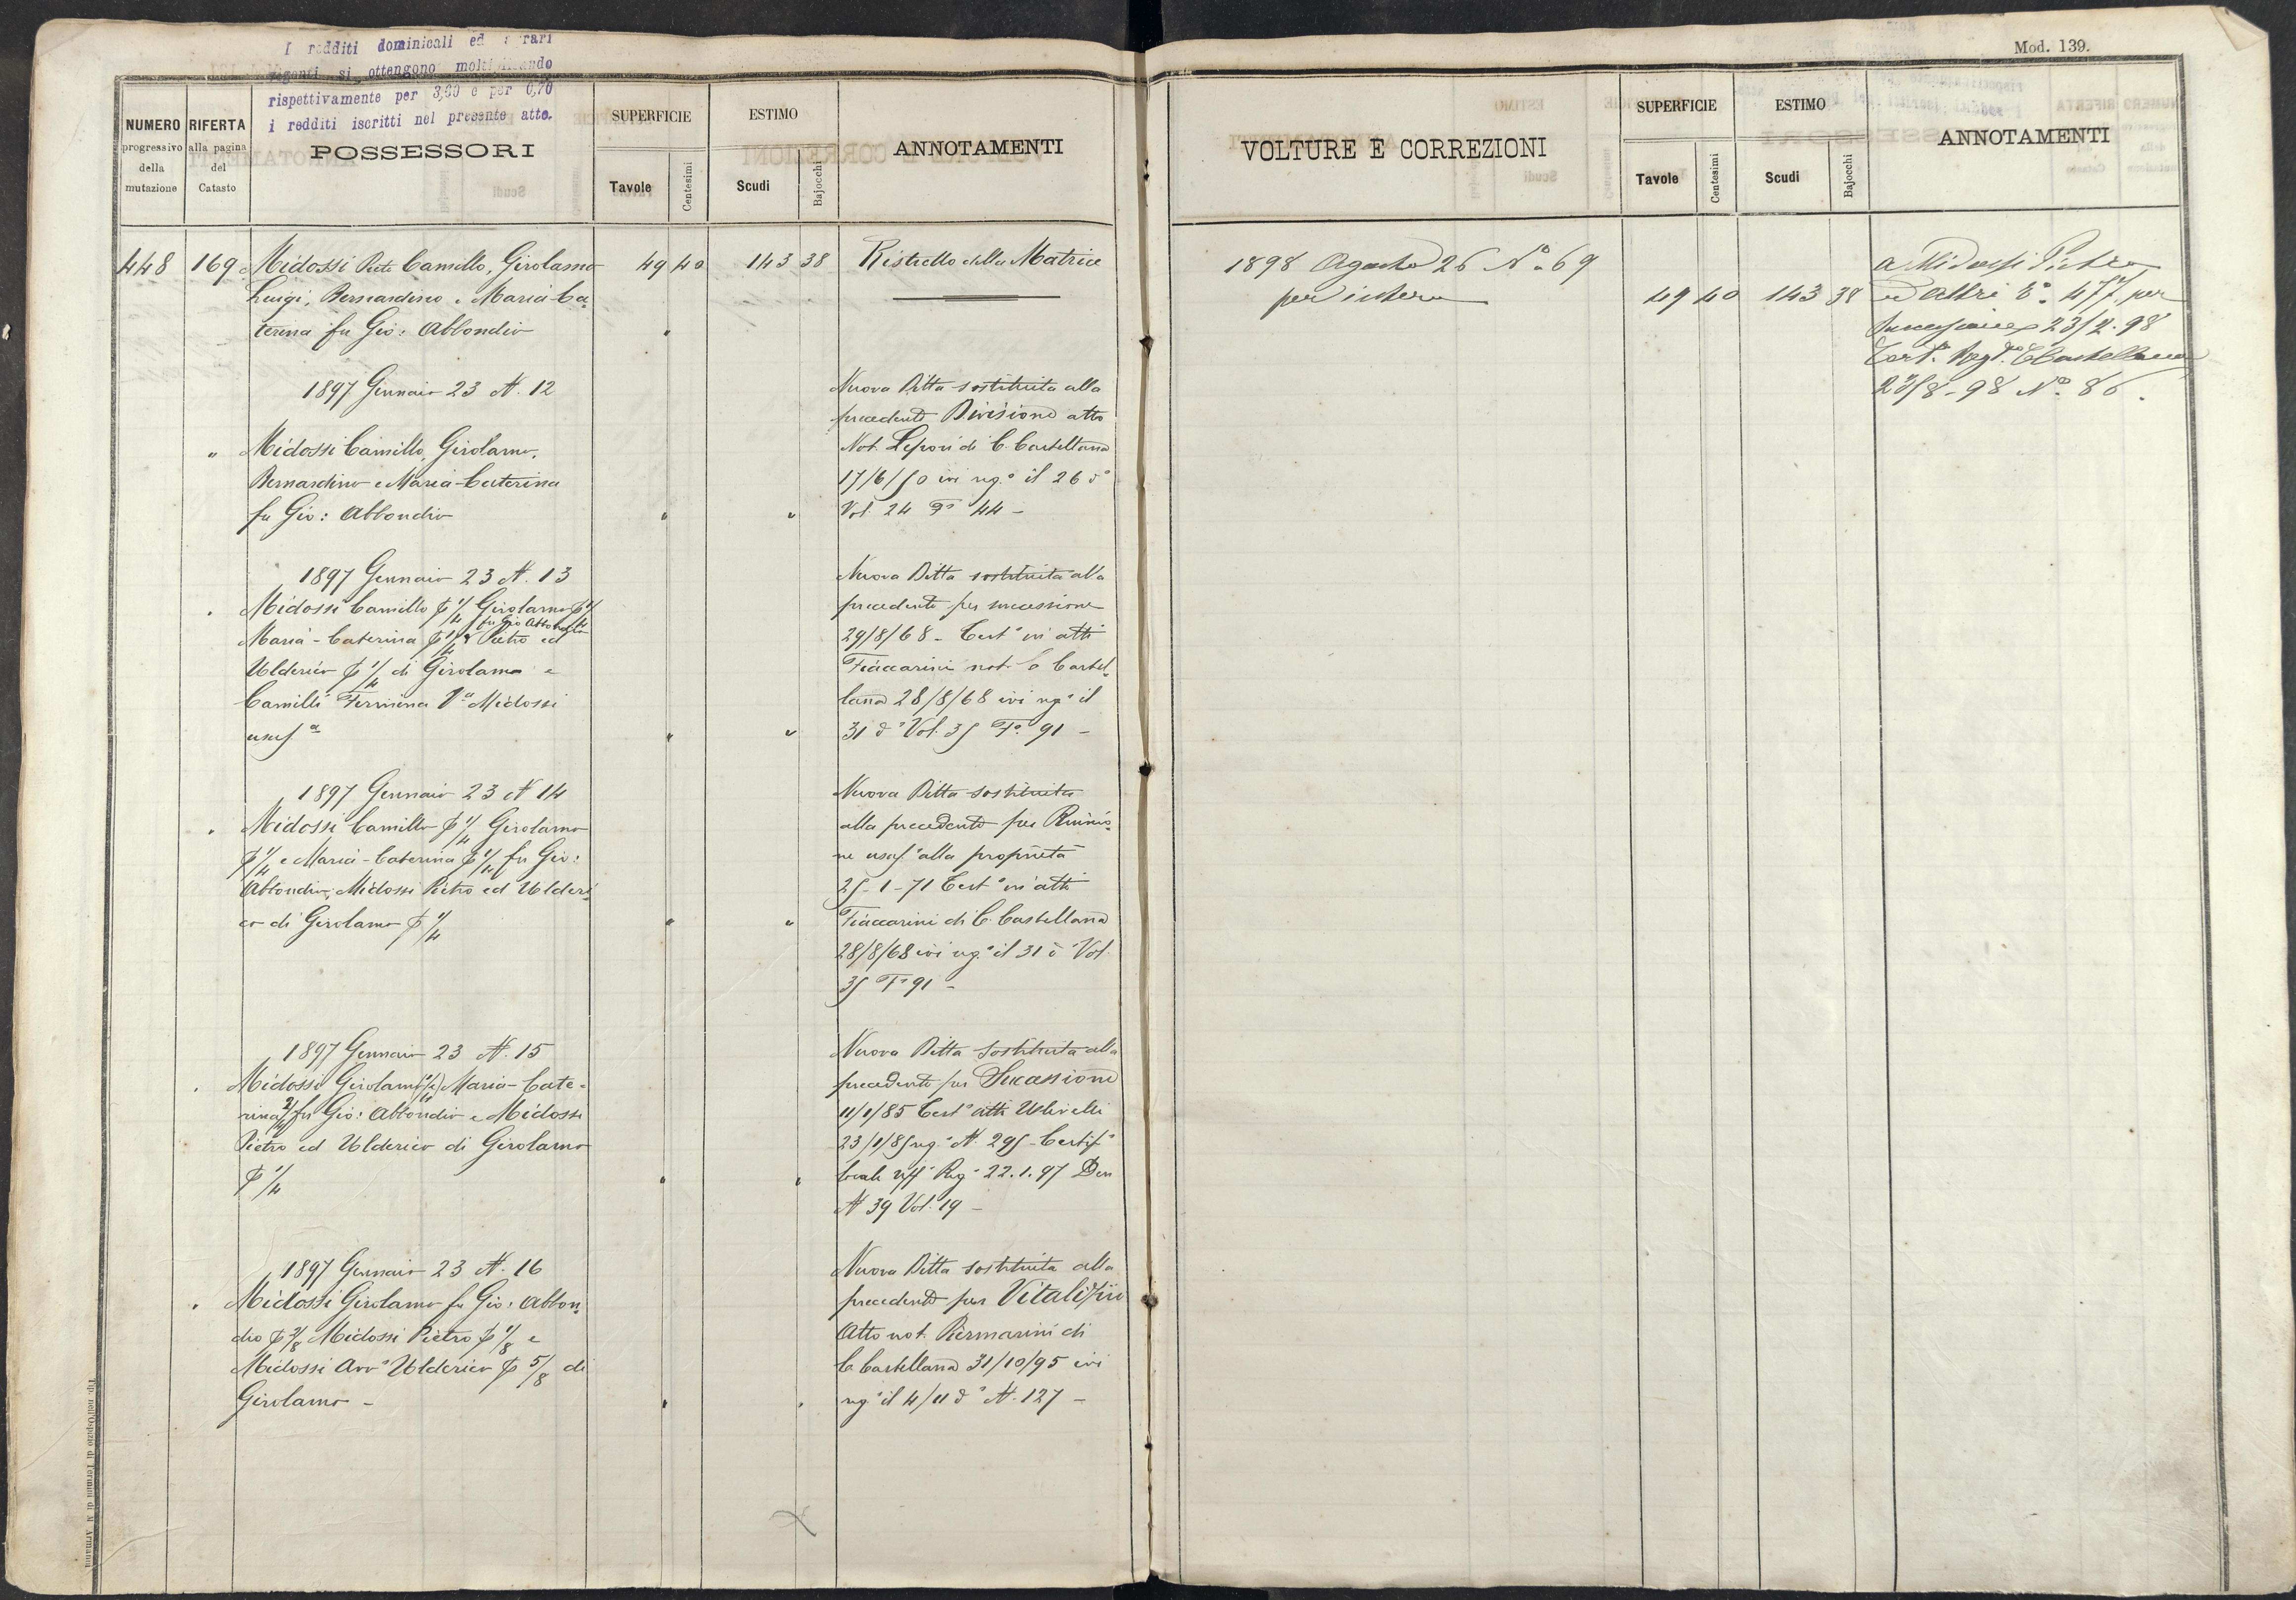 I redditi dominicali ed
si ottengono
rispettivamente per 3,60 e per 0,70
i redditi iscritti nel presente atto.
Mod. 139.
NUMERO
progressivo
della
mutazione
RIFERTA
alla pagina
del
Catasto
POSSESSORI
SUPERFICIE
Tavole
Centesimi
ESTIMO
Scudi
Bajocchi
ANNOTAMENTI
VOLTURE E CORREZIONI
SUPERFICIE
Tavole
Centesimi
ESTIMO
Scudi
Bajocchi
ANNOTAMENTI
448 169 Midossi Camillo, Girolamo 49 40 143 38 Ristretto della Matrice
Luigi, Bernardino e Maria-Ca
terina fu Gio: Abbondio
1897 Gennaio 23 N. 12
" Midossi Camillo, Girolamo,
Bernardino e Maria-Caterina
fu Gio: Abbondio " "
Nuova Ditta sostituita alla
precedente Divisione atto
Not. Lepori di C. Castellana
17/6/50 ivi reg.° il 26 d°
Vol. 24 F° 44 -
1897 Gennaio 23 N. 13
" Midossi Camillo p 1/4 Girolamo p 1/4
fu Gio Abbondio
Maria-Caterina p 1/4 Pietro ed
Ulderico p 1/4 di Girolamo e
Camilli Fermina V.a Midossi
usuf.a " "
Nuova Ditta sostituita alla
precedente per successione
29/8/68 - Cert° in atti
Fiaccarini not. C. Castel
lana 28/8/68 ivi reg° il
31 d° Vol. 35 F° 91 -
1897 Gennaio 23 N 14
" Midossi Camillo p 1/4 Girolamo
p 1/4 e Maria-Caterina p 1/4 fu Gio:
Abbondio, Midossi Pietro ed Ulderi
co di Girolamo p 1/4 " "
Nuova Ditta sostituita
alla precedente per Riunio
ne usuf° alla proprietà
25-1-71 Cert° in atti
Fiaccarini di C. Castellana
28/8/68 ivi reg.° il 31 d° Vol.
35 F° 91 -
1897 Gennaio 23 N. 15
" Midossi Girolamo Maria-Cate-
rina fu Gio: Abbondio e Midossi
Pietro ed Ulderico di Girolamo
p 1/4 " "
Nuova Ditta sostituita alla
precedente per Successione
11/1/85 Cert° atti Ulivelli
23/1/85 reg.° N. 295 - Certif°
Uff° Reg° 22.1.97 Den
N 39 Vol. 19 -
1897 Gennaio 23 N. 16
" Midossi Girolamo fu Gio: Abbon
dio p 2/8 Midossi Pietro p 1/8 e
Midossi Avv° Ulderico p 5/8 di
Girolamo - " "
Nuova Ditta sostituita alla
precedente per Vitalizio
Atto not. Piermarini di
C. Castellana 31/10/95 ivi
reg° il 4/11 d° N. 127 -
1898 Agosto 26 N° 69
per intero 49 40 143 38
a Midossi Pietro
ed altri 477, per
Successione 23/2.98
Cert. Castellana
8-98 N° 86.